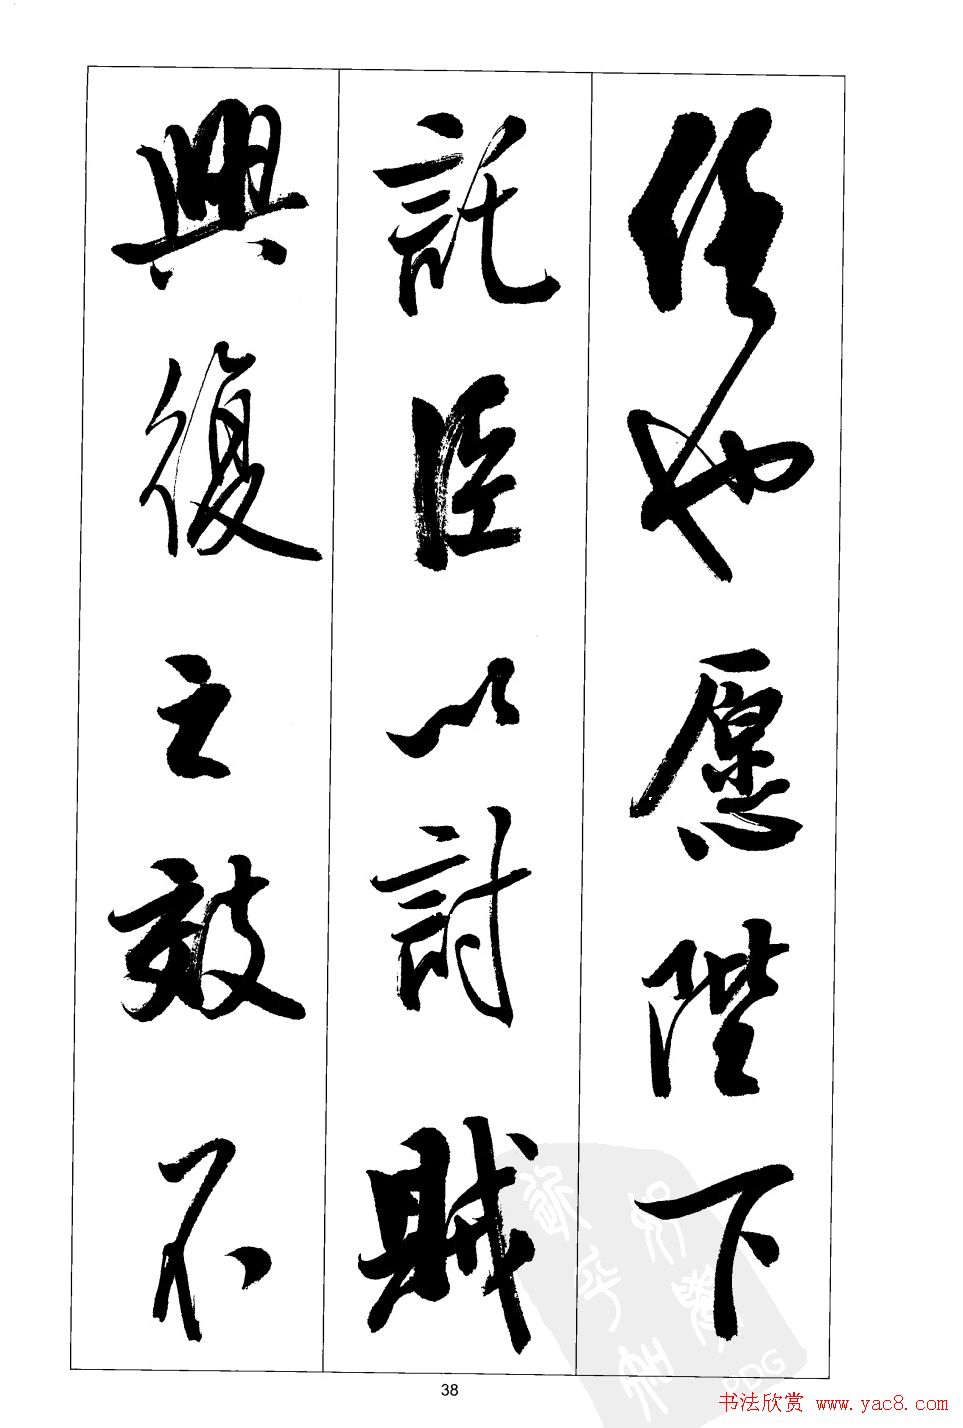 任也愿陛下
託臣以討賊
興復之效不
38
书法欣赏 www.yac8.com